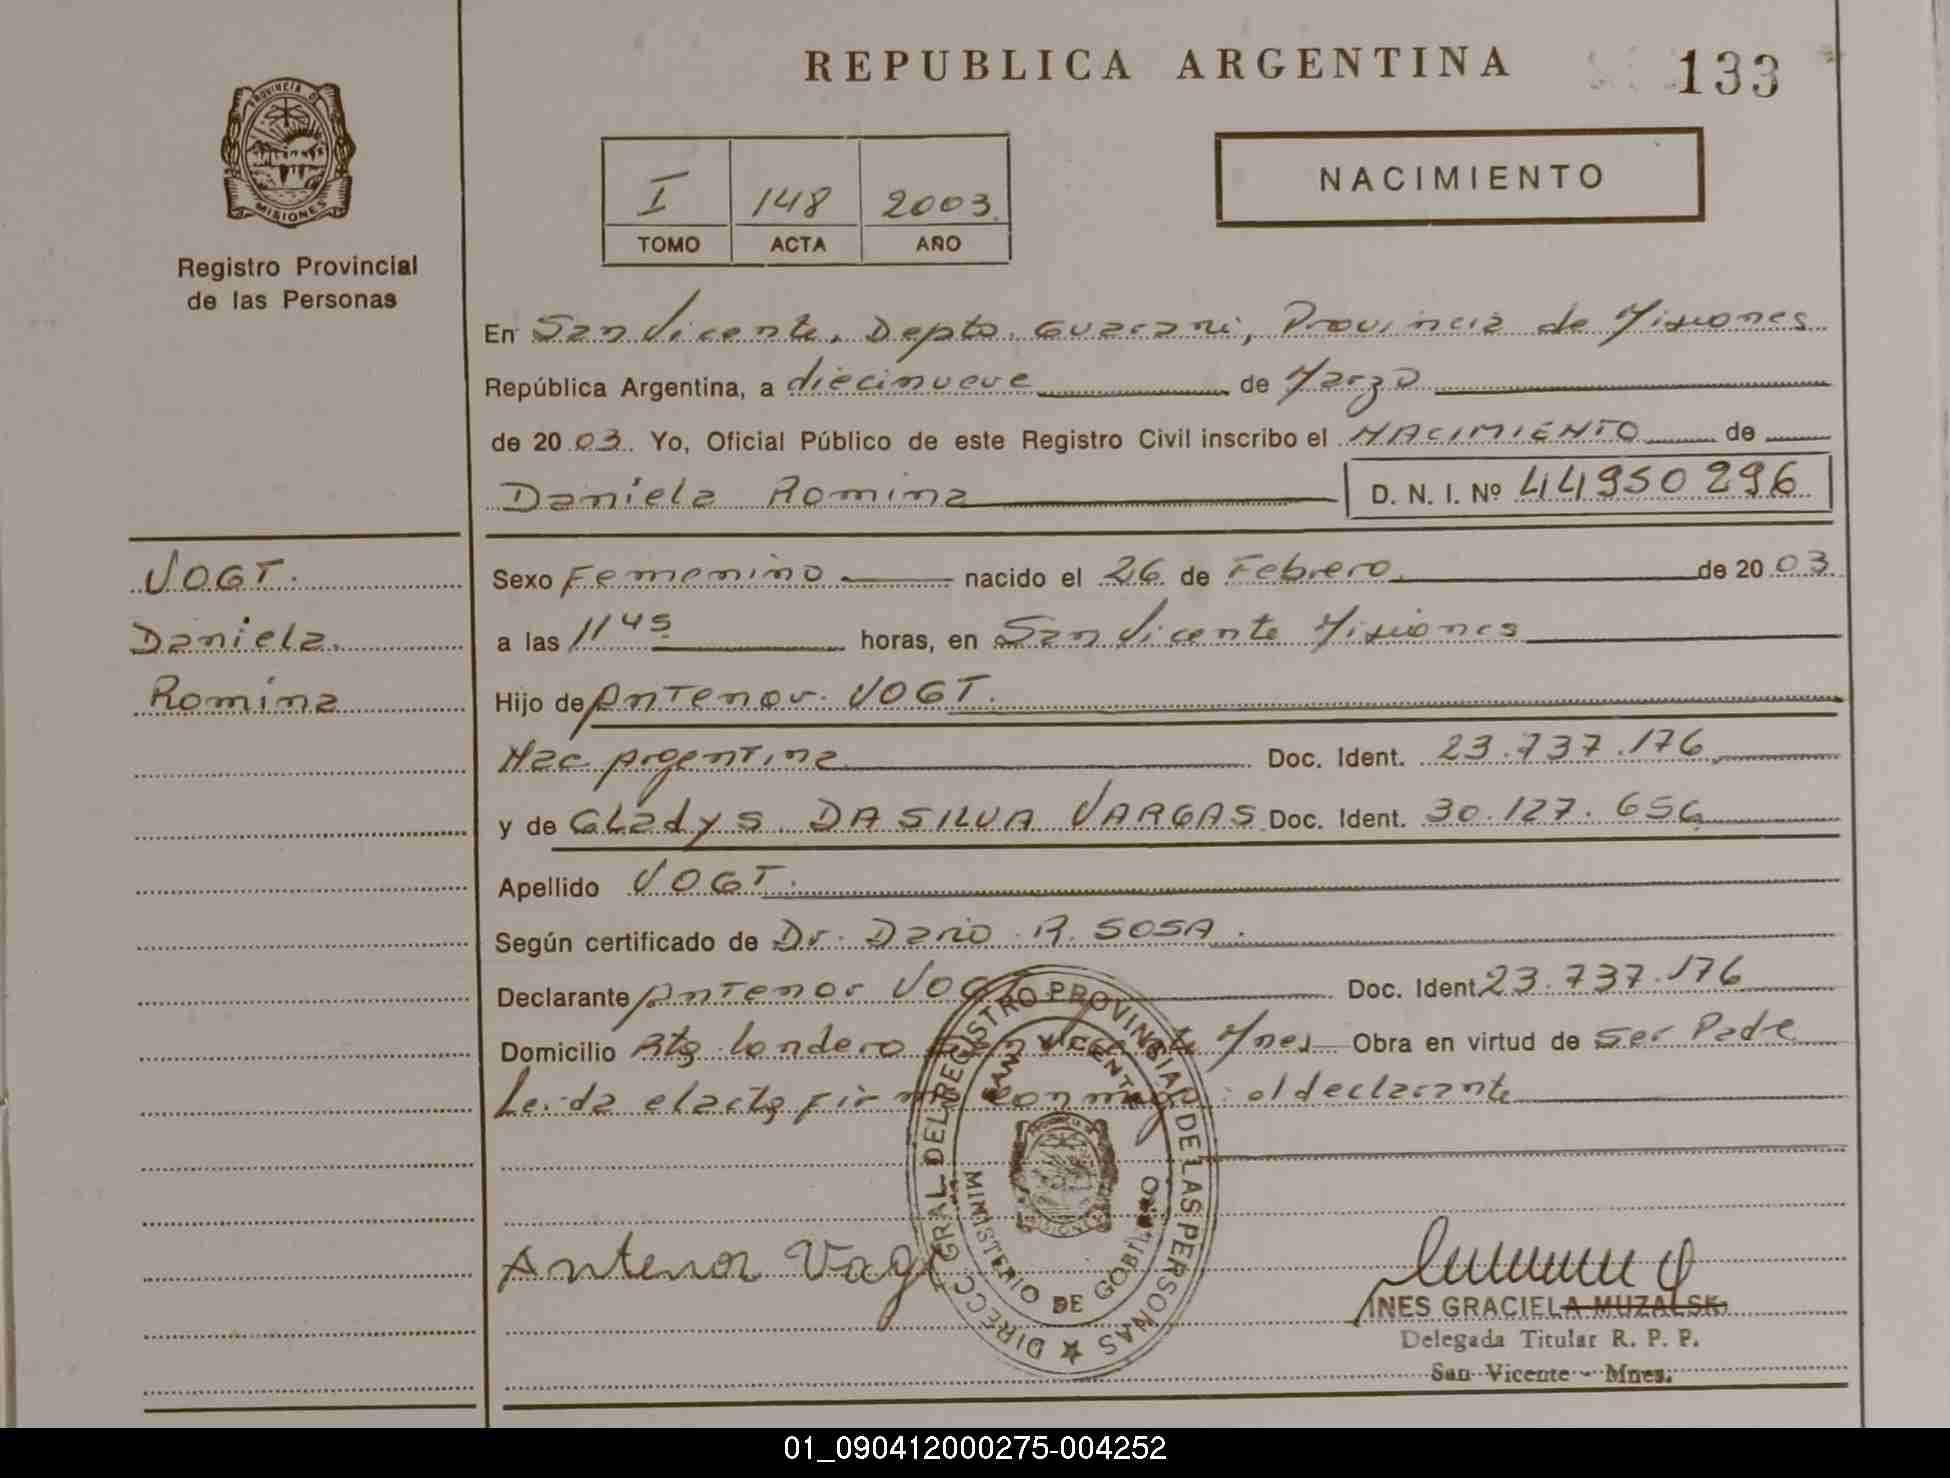 REPUBLICA ARGENTINA
133
PROVINCIA DE
MISIONES
Registro Provincial
de las Personas
I 148 2003.
TOMO ACTA AÑO
NACIMIENTO
En San Vicente, Depto. Guarani, Provincia de Misiones
República Argentina, a diecinueve de Marzo
de 2003. Yo, Oficial Público de este Registro Civil inscribo el NACIMIENTO de
Daniela Romina D. N. I. Nº 44950296
VOGT.
Daniela.
Romina
Sexo Femenino nacido el 26 de Febrero de 2003.
a las 11 45 horas, en San Vicente Misiones
Hijo de Antenor VOGT.
Nac Argentina Doc. Ident. 23.737.176
y de GLadys DA SILVA VARGAS Doc. Ident. 30.127.656
Apellido VOGT.
Según certificado de Dr. Dario R. SOSA.
Declarante Antenor VOGT Doc. Ident 23.737.176
Domicilio Londero San Vicente Mnes Obra en virtud de ser Padre
Leida el acta firma conmigo: el declarante
DIRECC. GRAL. DEL REGISTRO PROVINCIAL DE LAS PERSONAS
SAN VICENTE
MINISTERIO DE GOBIERNO
Antenor Vogt
INES GRACIELA MUZALSKI
Delegada Titular R. P. P.
San Vicente - Mnes.
01_090412000275-004252